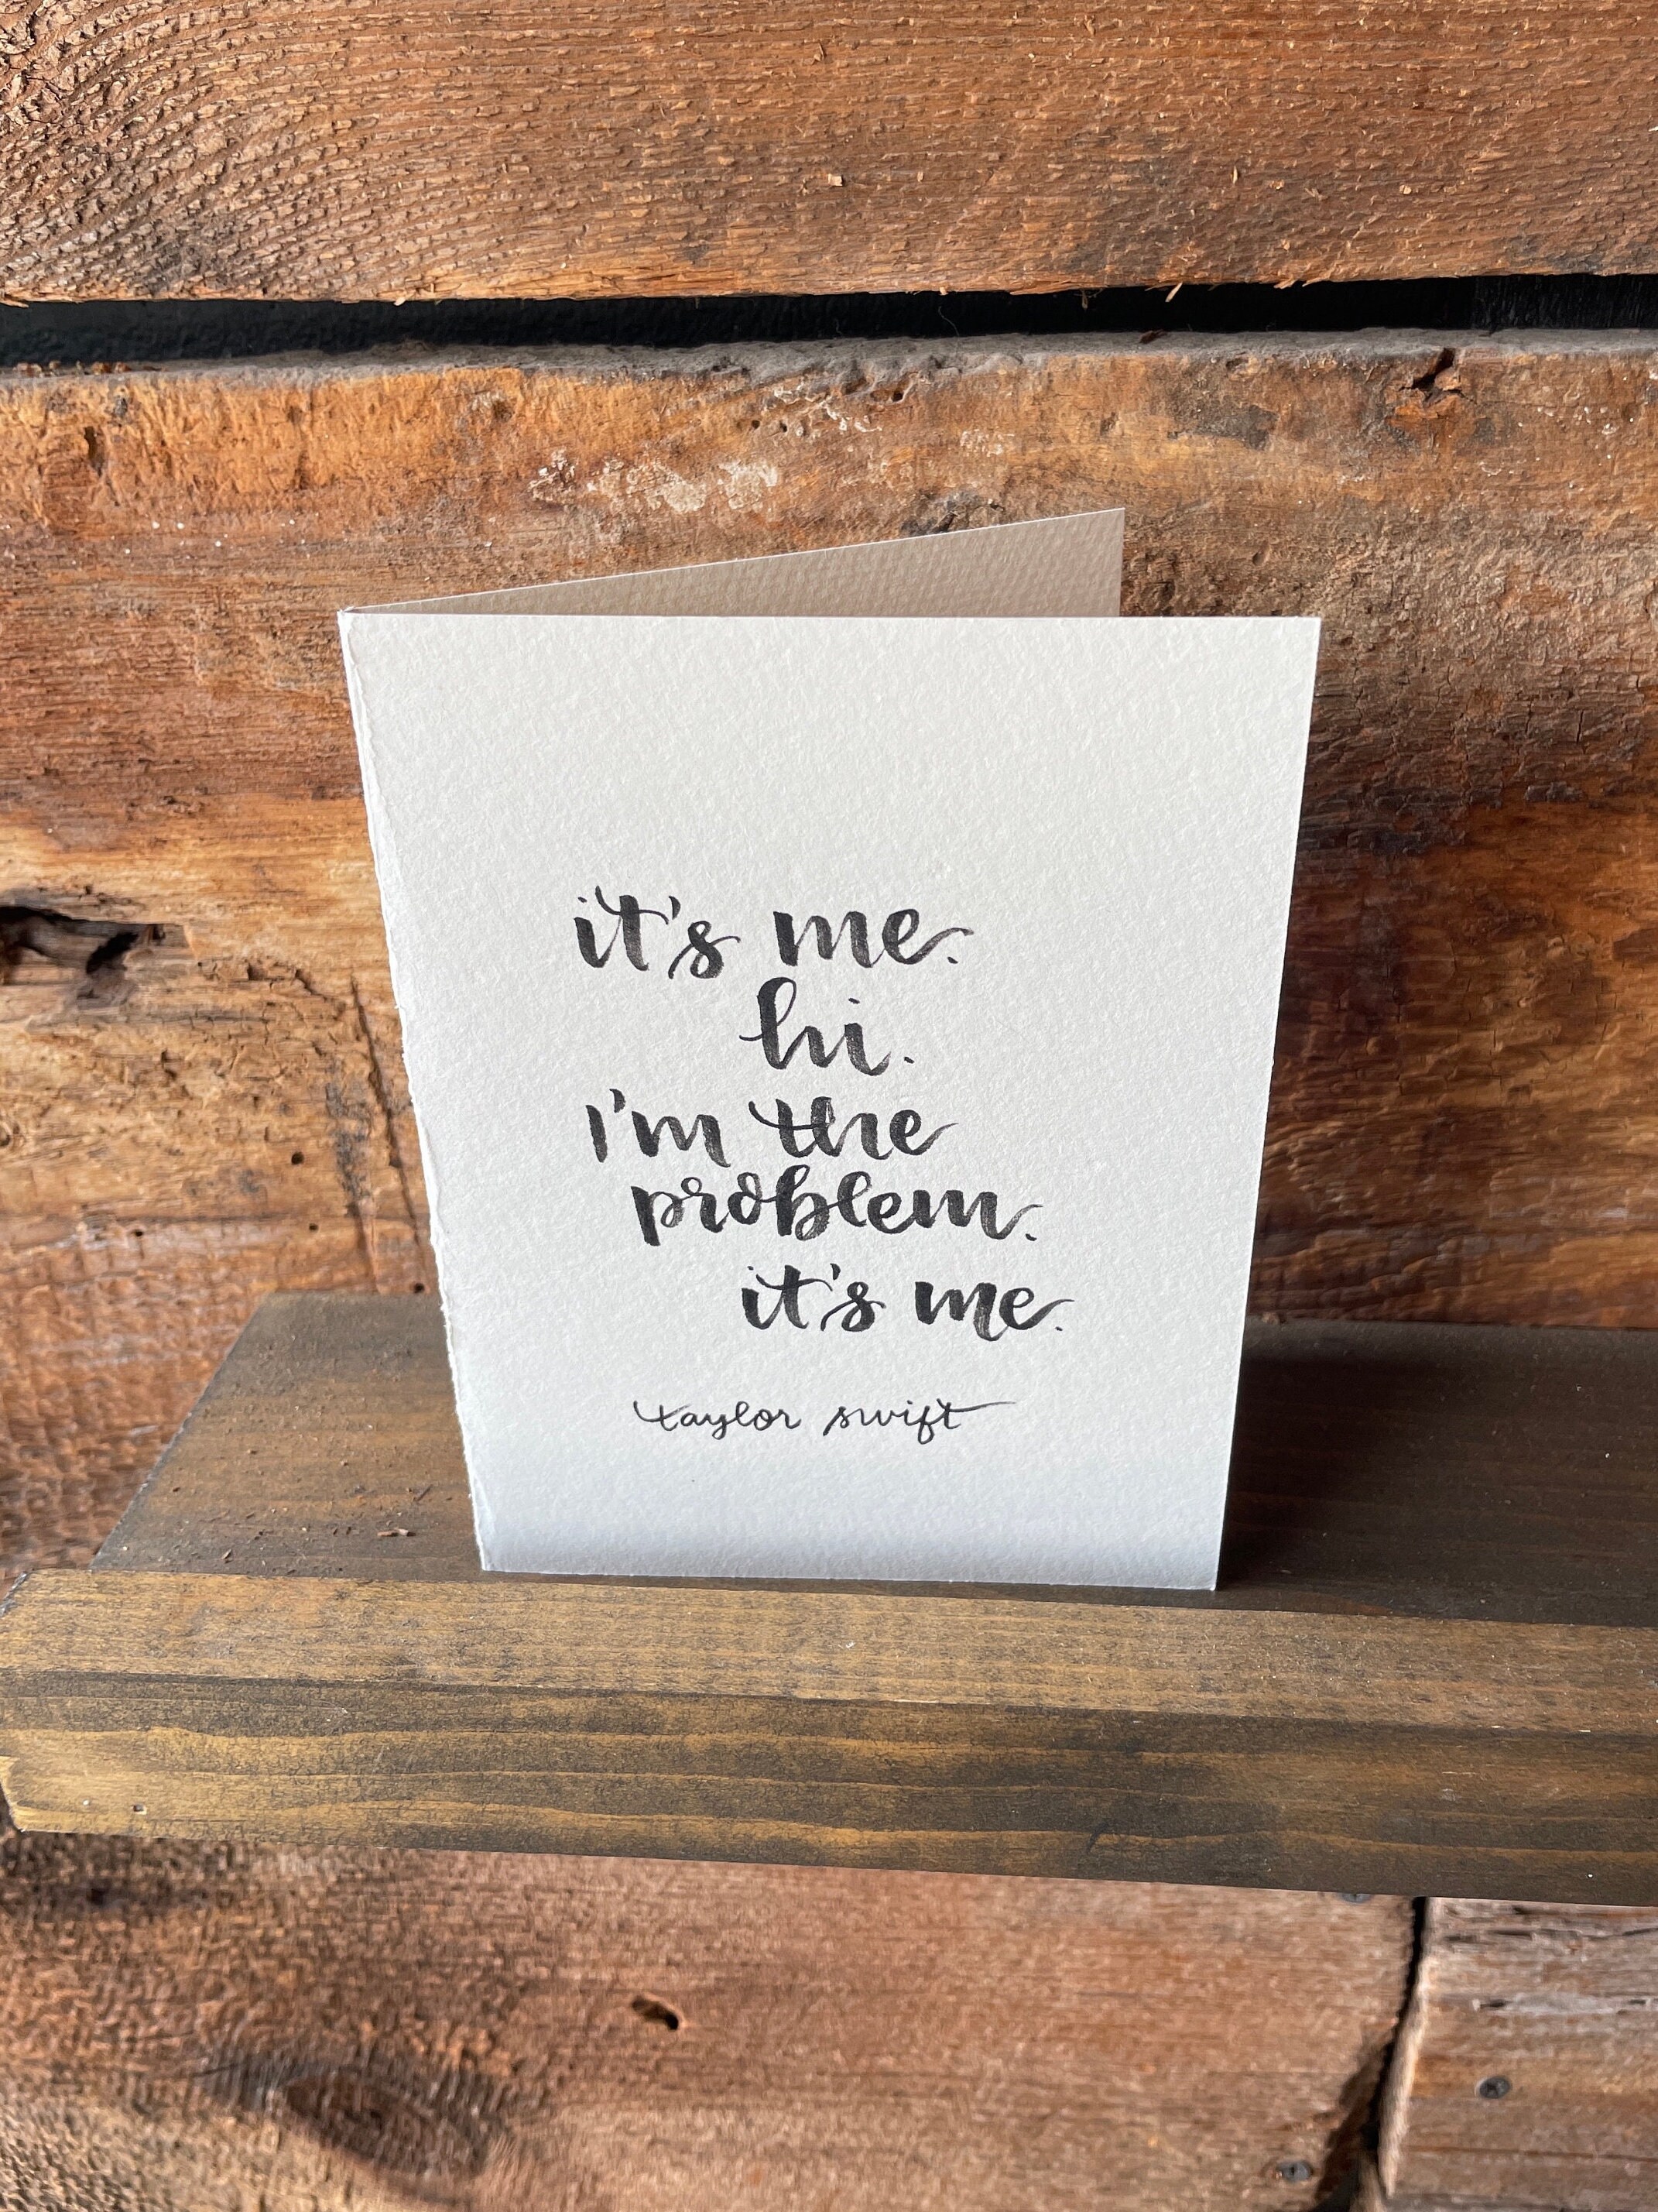 it's me.
hi.
I'm the
problem.
it's me.
taylor swift